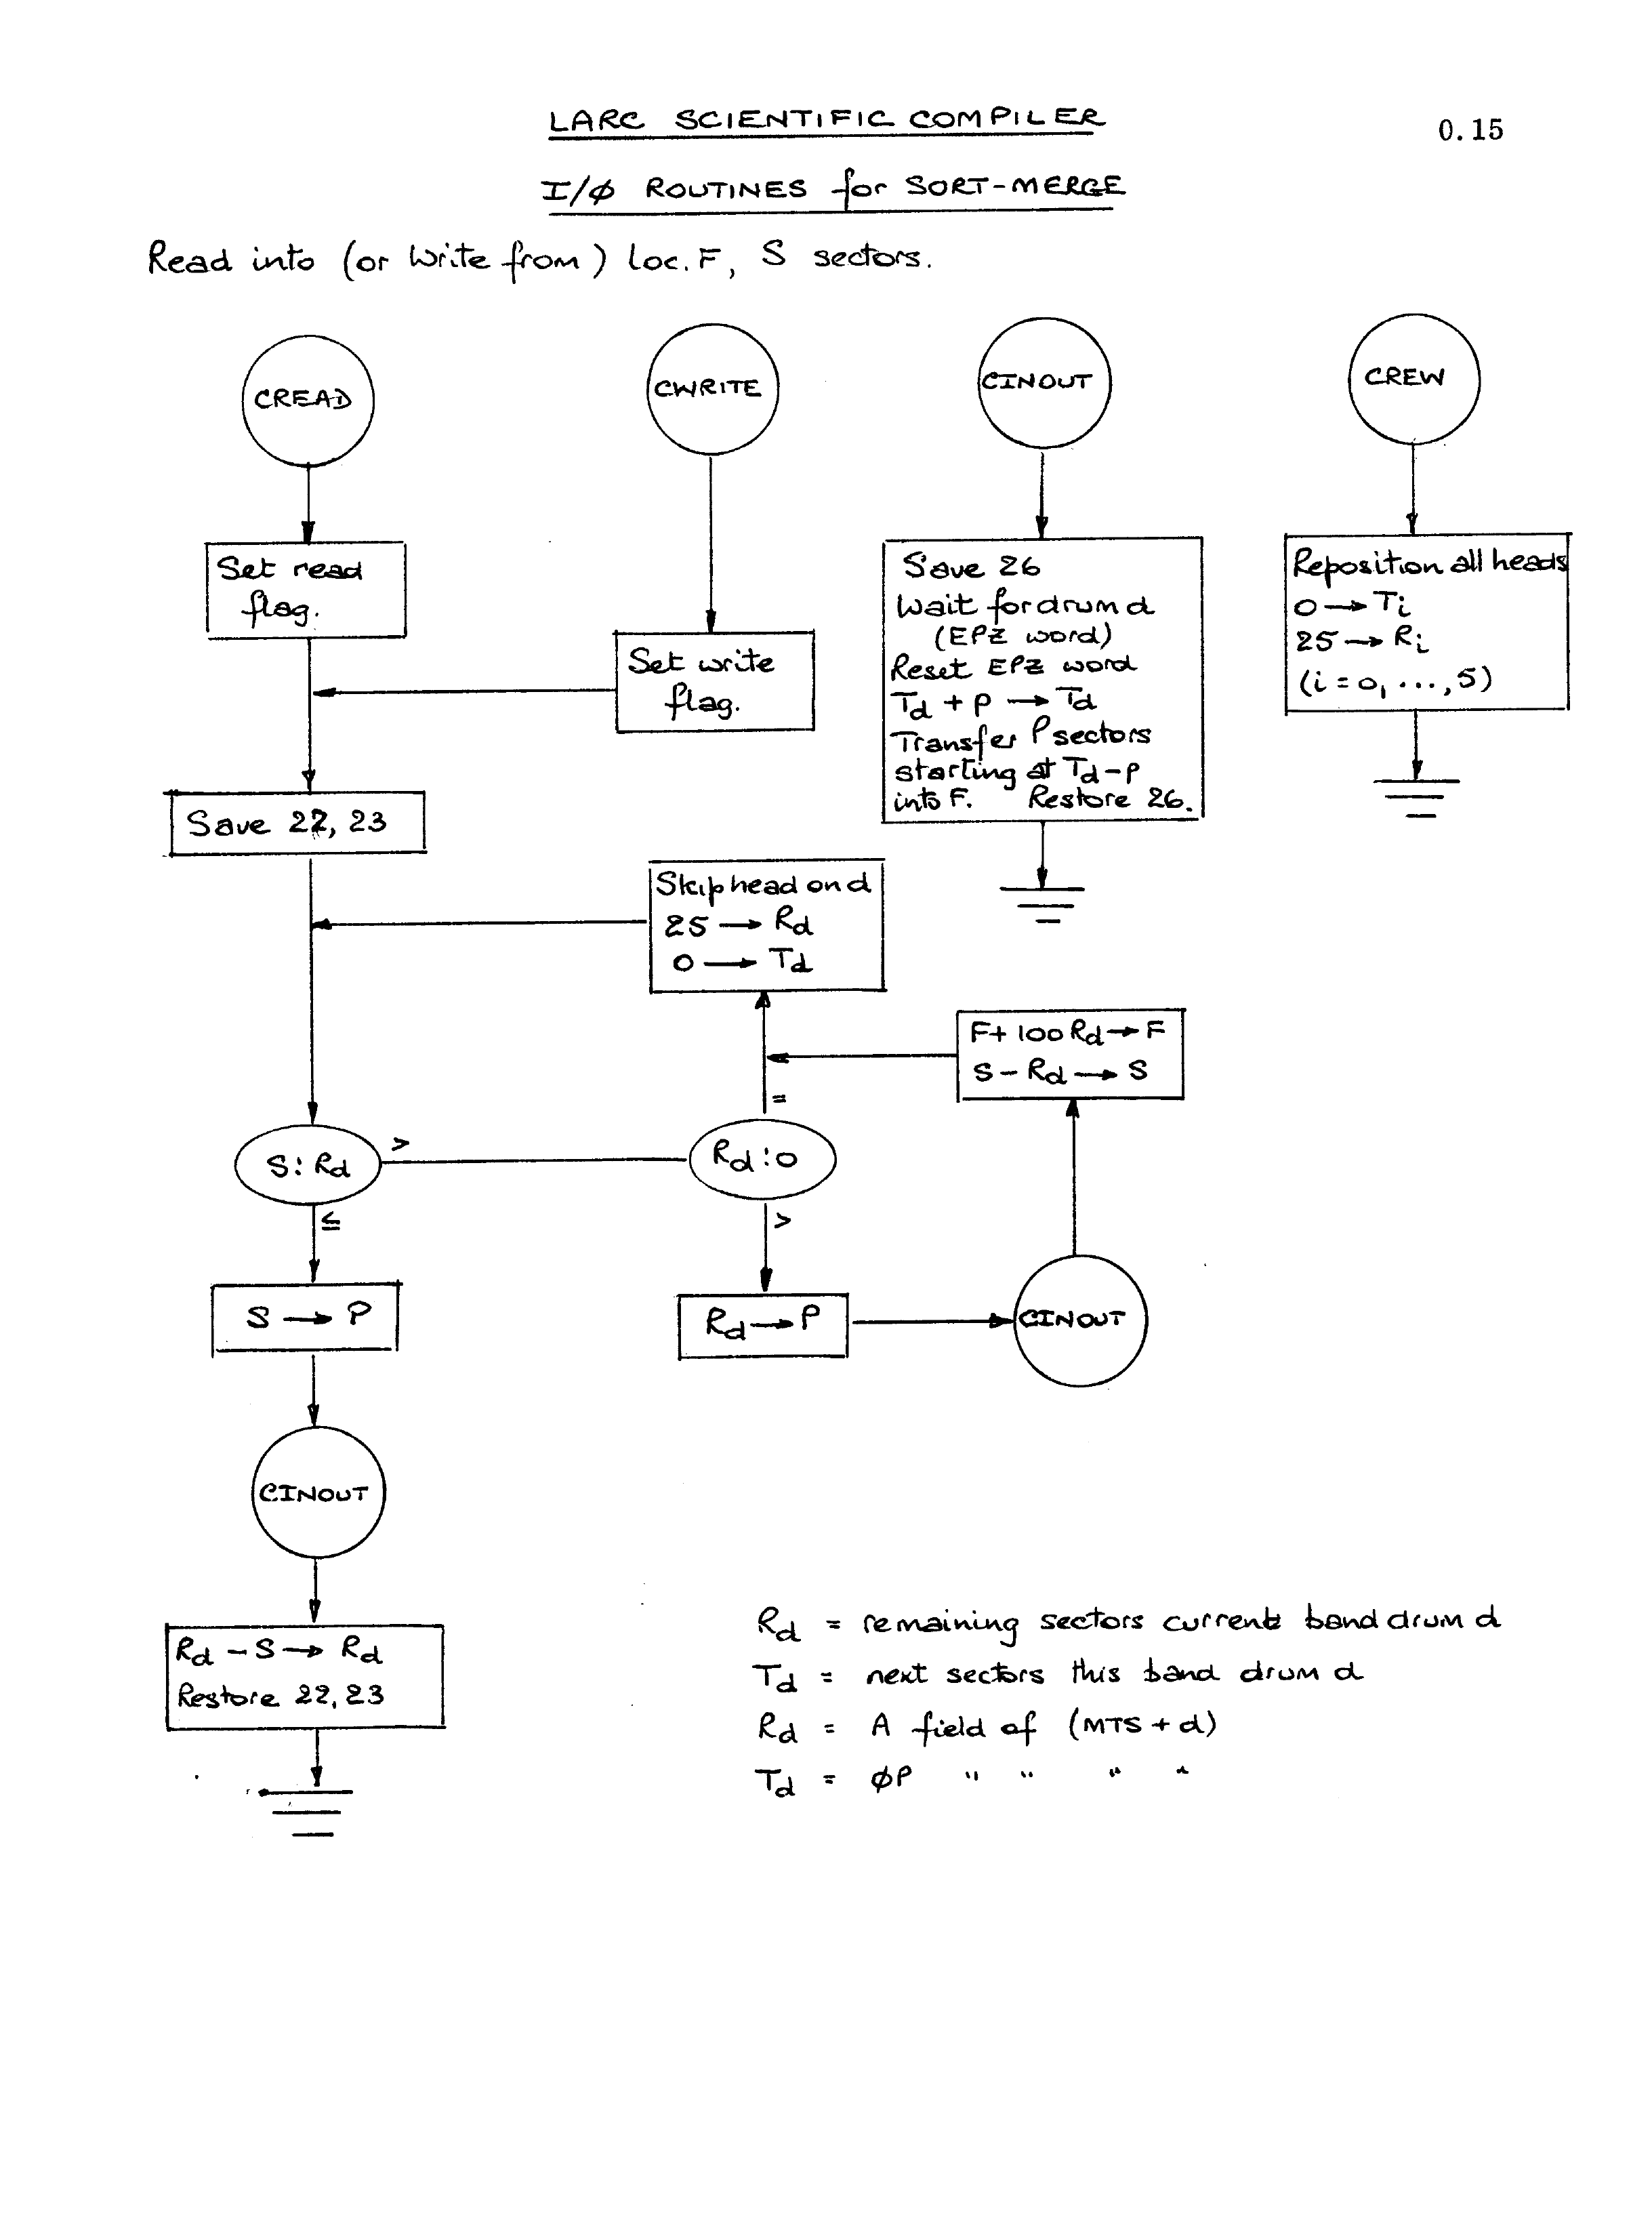 LARC SCIENTIFIC COMPILER
0.15
I/Ø ROUTINES for SORT-MERGE
Read into (or Write from) Loc. F, S sectors.
CREAD
CWRITE
CINOUT
CREW
Set read
flag.
Set write
flag.
Save 26
Wait for drum d
(EPZ word)
Reset EPZ word
Td + P → Td
Transfer P sectors
starting at Td-P
into F. Restore 26.
Reposition all heads
0 → Ti
25 → Ri
(i = 0, ..., 5)
Save 22, 23
Skip head on d
25 → Rd
0 → Td
F + 100 Rd → F
S - Rd → S
=
S : Rd
>
Rd : 0
≤
>
S → P
Rd → P
CINOUT
CINOUT
Rd - S → Rd
Restore 22, 23
Rd = remaining sectors current band drum d
Td = next sectors this band drum d
Rd = A field of (MTS + d)
Td = ØP " " " "